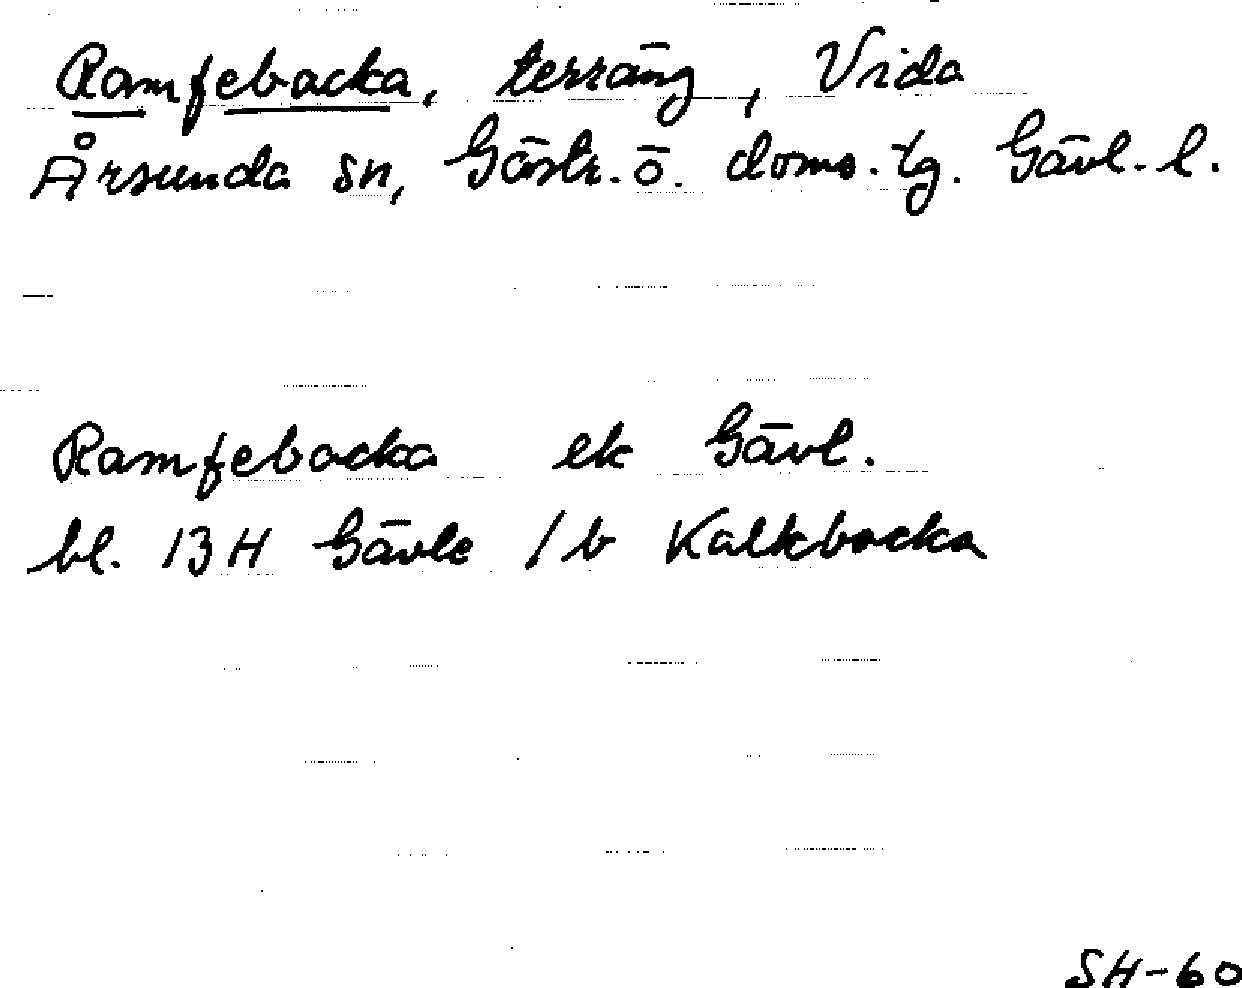 Ramfebacka, terräng, Vida
Årsunda sn, Gästr. ö. doms. tg. Gävl. l.
Ramfebacka ek Gävl.
bl. 13H Gävle 1b Kalkbacka
SH-60